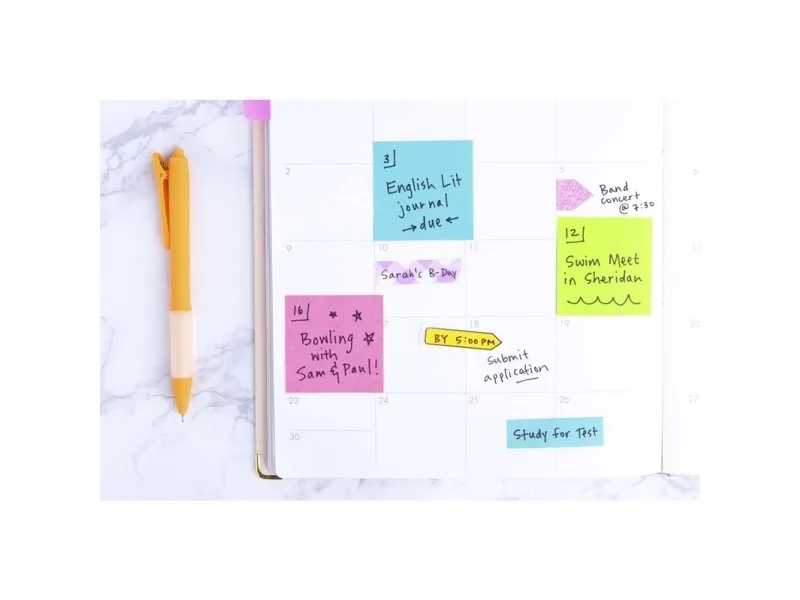 2
3
English Lit
journal
→due←
5
Band
concert
@ 7:30
6
9
10
Sarah's B-Day
11
12
Swim Meet
in Sheridan
13
16
Bowling
with
Sam & Paul!
18
BY 5:00 PM
Submit
application
19
20
23
24
25
26
Study for Test
27
30